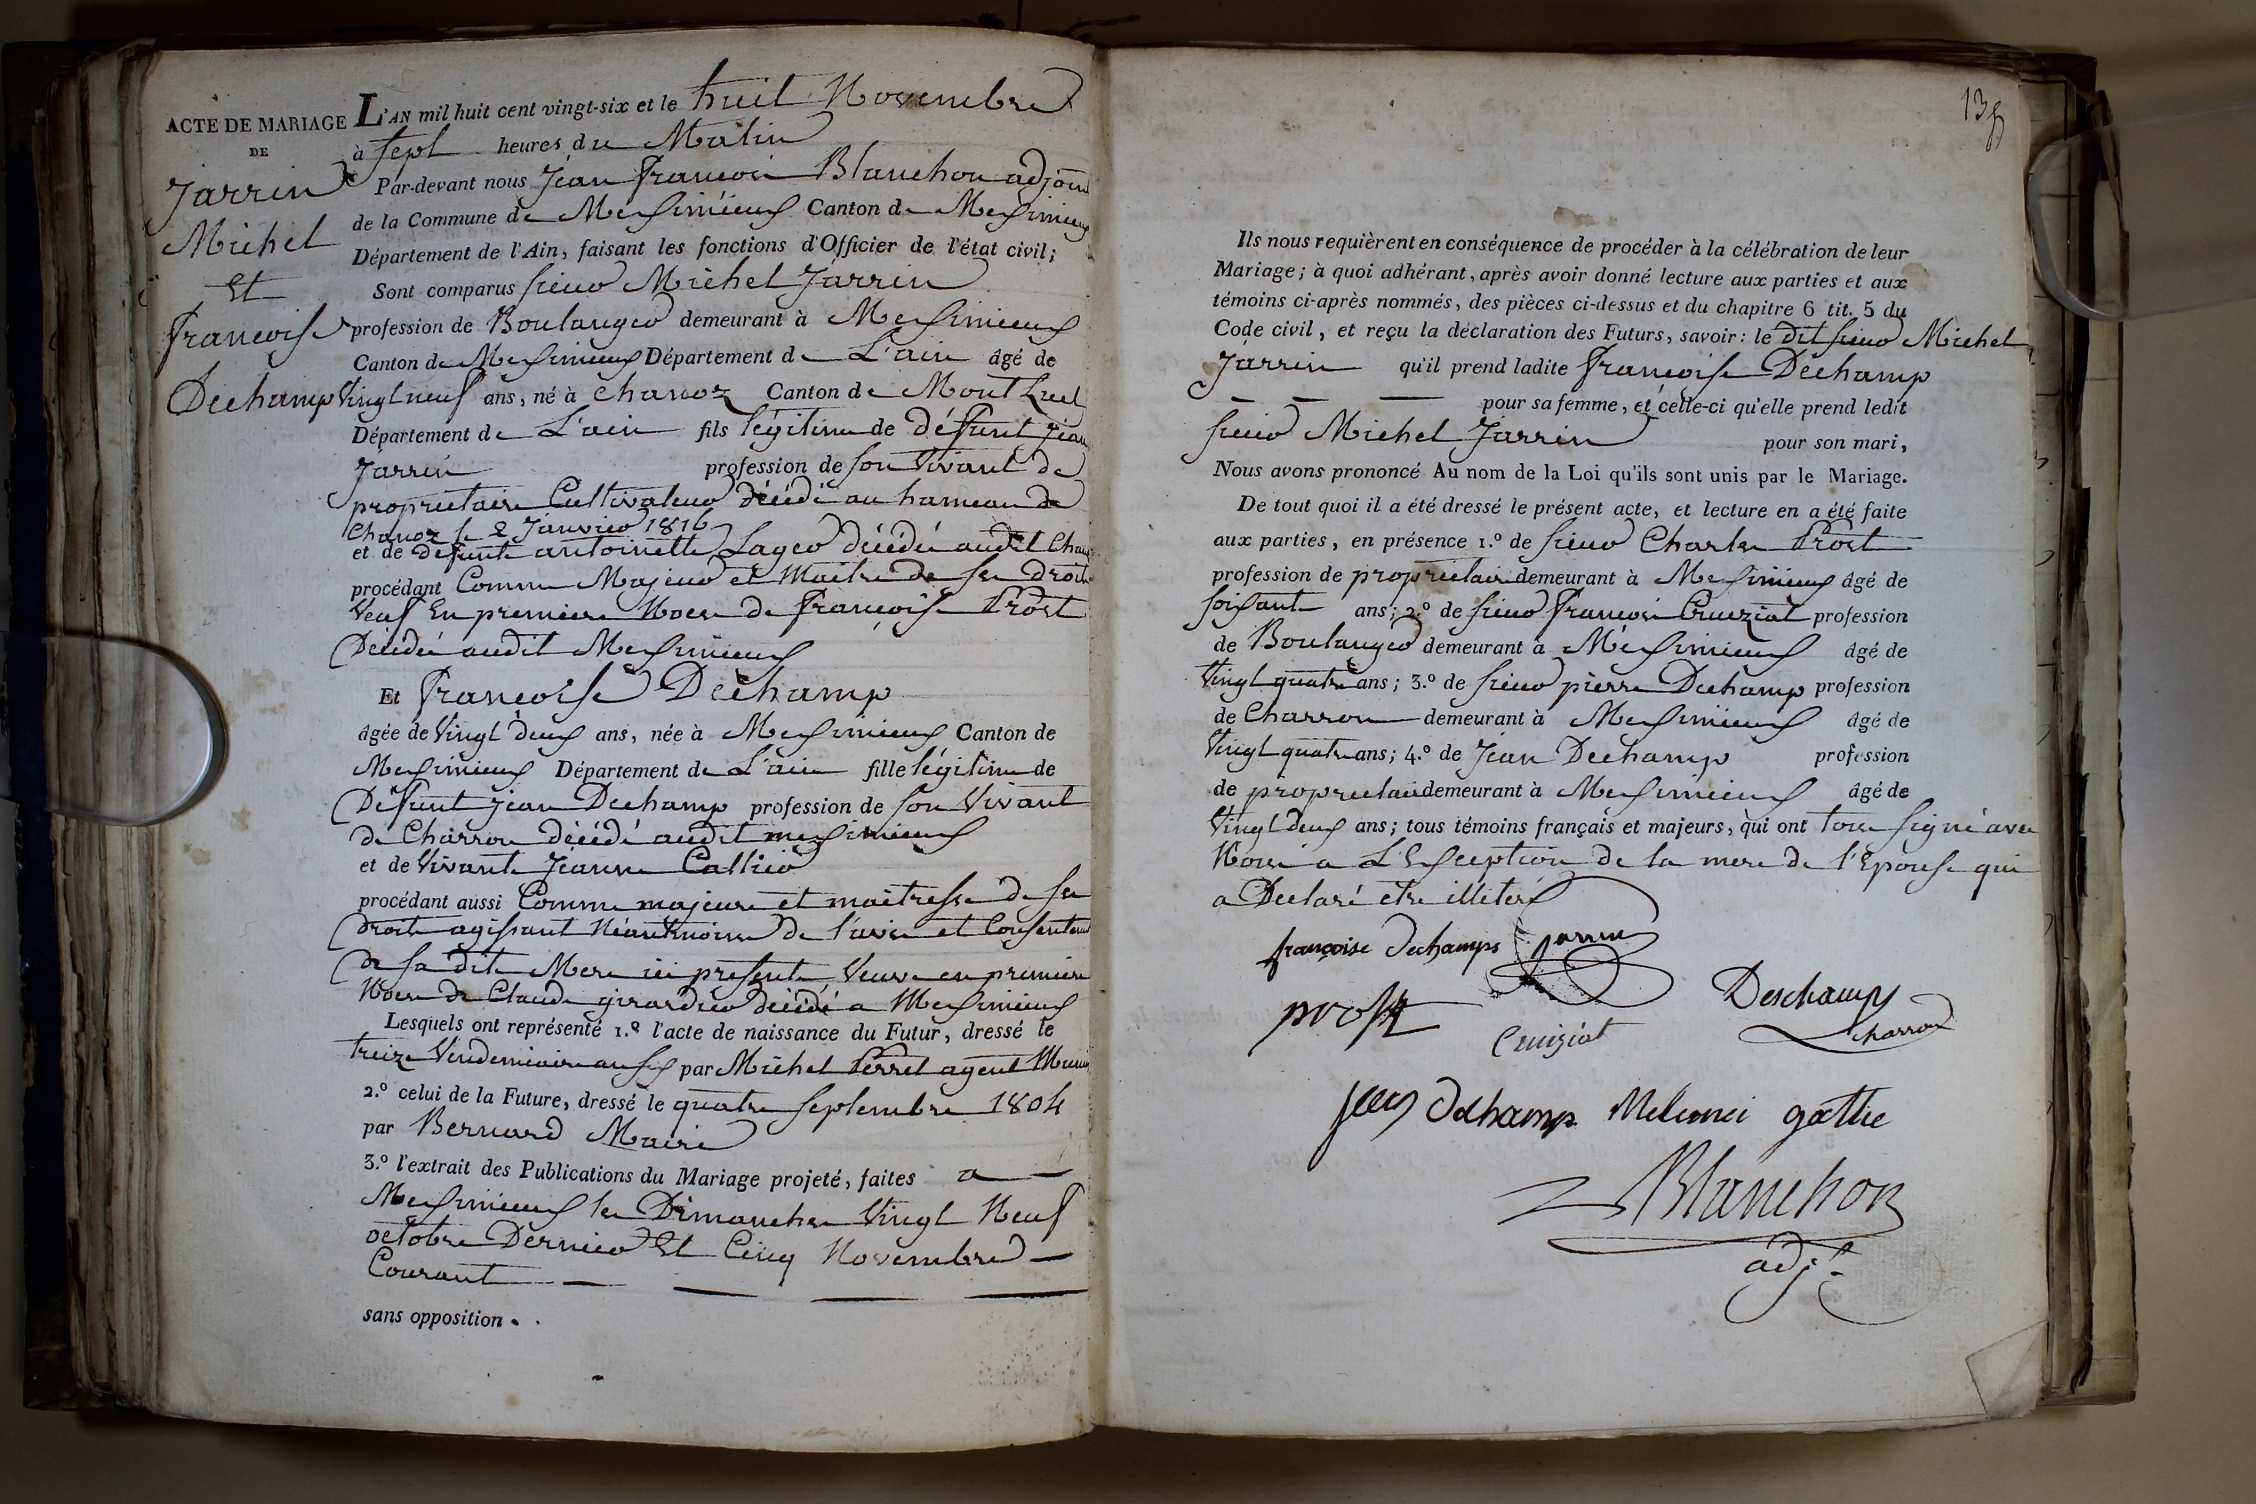 ACTE DE MARIAGE
DE
Jarrin
Michel
Et
francoise
Dechamp
L'AN mil huit cent vingt-six et le huit Novembre
à sept heures du Matin
Par-devant nous Jean francois Blanchon adjoint
de la Commune de Meximieux Canton de Meximieux
Département de l'Ain, faisant les fonctions d'Officier de l'état civil;
Sont comparus sieur Michel Jarrin
profession de Boulanger demeurant à Meximieux
Canton de Meximieux Département de L'ain âgé de
Vingt neuf ans, né à Chanoz Canton de Mont Luel
Département de L'ain fils légitime de défunt jean
Jarrin profession de son vivant de
proprietaire Cultivateur décédé au hameau de
Chanoz le 2 Janvier 1816
et de defunte antoinette Lager décédée audit Chanoz
procédant Comme Majeur et Maitre de ses droits
Veuf En premiere Noces de françoise Prost
Décédée audit Meximieux
Et françoise Dechamp
âgée de Vingt deux ans, née à Meximieux Canton de
Meximieux Département de L'ain fille légitime de
Defunt jean Dechamp profession de son Vivant
de Charron décédé audit meximieux
et de Vivante Jeanne Cattier
procédant aussi Comme majeure et maitresse de ses
droits agissant Néantmoins de l'avis et Consentement
de sa dite Mere ici presente Veuve en premiere
Noces de Claude girardier décédé a Meximieux
Lesquels ont représenté 1.º l'acte de naissance du Futur, dressé le
treize Vendemiaire an six par Michel Perret agent Munic
2.º celui de la Future, dressé le quatre septembre 1804
par Bernard Maire
3.º l'extrait des Publications du Mariage projeté, faites a
Meximieux les Dimanches Vingt Neuf
octobre Dernier Et Cinq Novembre
Courant
sans opposition.
138
Ils nous requièrent en conséquence de procéder à la célébration de leur
Mariage; à quoi adhérant, après avoir donné lecture aux parties et aux
témoins ci-après nommés, des pièces ci-dessus et du chapitre 6 tit. 5 du
Code civil, et reçu la déclaration des Futurs, savoir: le dit sieur Michel
Jarrin qu'il prend ladite françoise Dechamp
pour sa femme, et celle-ci qu'elle prend ledit
sieur Michel Jarrin pour son mari,
Nous avons prononcé Au nom de la Loi qu'ils sont unis par le Mariage.
De tout quoi il a été dressé le présent acte, et lecture en a été faite
aux parties, en présence 1.º de sieur Charles Prost
profession de proprietaire demeurant à Meximieux âgé de
soixante ans; 2.º de sieur françois Cruiziat profession
de Boulanger demeurant à Meximieux âgé de
Vingt quatre ans; 3.º de sieur pierre Dechamp profession
de Charron demeurant à Meximieux âgé de
Vingt quatre ans; 4.º de Jean Dechamp profession
de proprietaire demeurant à Meximieux âgé de
Vingt deux ans; tous témoins français et majeurs, qui ont tous signé avec
Nous a L'Exception de la mere de l'Epouse qui
a Declaré etre illeteré
françoise dechamps Jarrin
prost
Cruiziat
Deschamps
charron
jean dechamp gattie
Blanchon
adjt